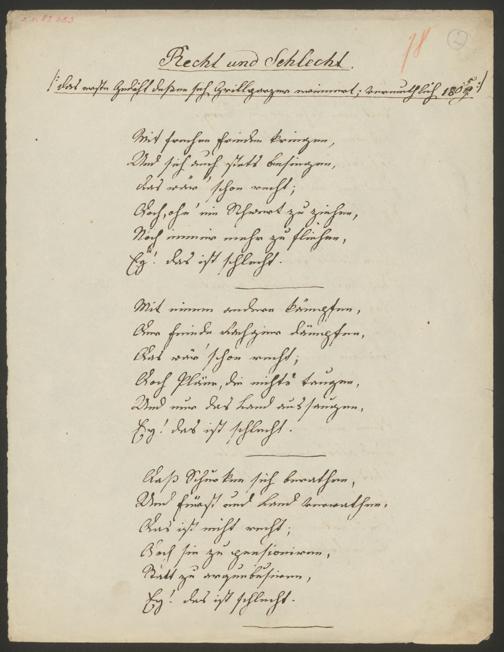 18
2
Recht und Schlecht.
/: das erste Gedicht dessen sich Grillparzer erinnert; vermuthlich 1805 :/
Mit frechen Feinden kriegen,
Und sich auch stets besiegen,
Das wär' schon recht;
Doch, ohn' ein Schwert zu ziehen,
Noch immer mehr zu fliehen,
Ey! das ist schlecht.
Mit einem andern kämpfen,
Der Feinde Rachgier dämpfen,
Das wär' schon recht;
Doch Pläne, die nichts taugen,
Und nur das Land aussaugen,
Ey! das ist schlecht.
Daß Schurken sich berathen,
Und Fürst und Land verrathen,
Das ist nicht recht;
Doch sie zu pensioniren,
Statt zu arquebusiren,
Ey! das ist schlecht.